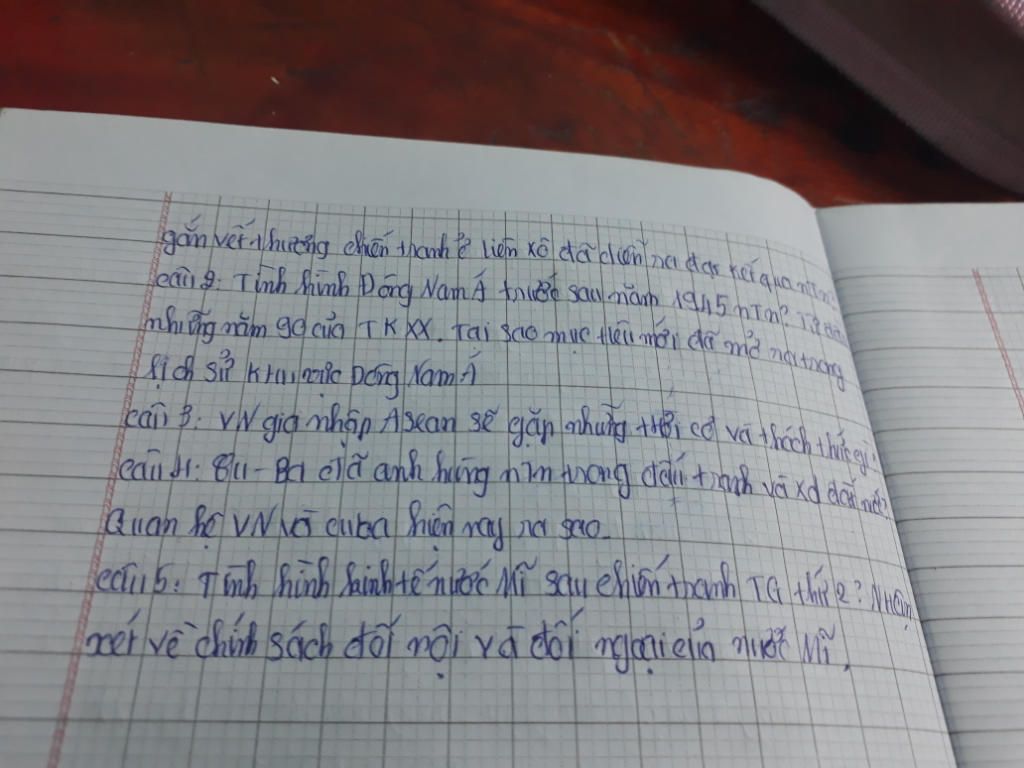 gắn vết thương chiến tranh ở liên xô đã diễn ra đạt kết quả ntn?
câu 2: Tình hình Đông Nam Á trước sau năm 1945 ntn? Từ đầu
những năm 90 của TK XX. Tại sao mục tiêu mới đã mở ra trong
lịch sử khu vực Đông Nam Á
câu 3: VN gia nhập Asean sẽ gặp những thời cơ và thách thức gì?
câu 4: Cu-Ba đã anh hùng ntn trong đấu tranh và xd đất nước?
Quan hệ VN và cuba hiện nay ra sao.
câu 5: Tình hình kinh tế nước Mĩ sau chiến tranh TG thứ 2? Nhận
xét về chính sách đối nội và đối ngoại của nước Mĩ.